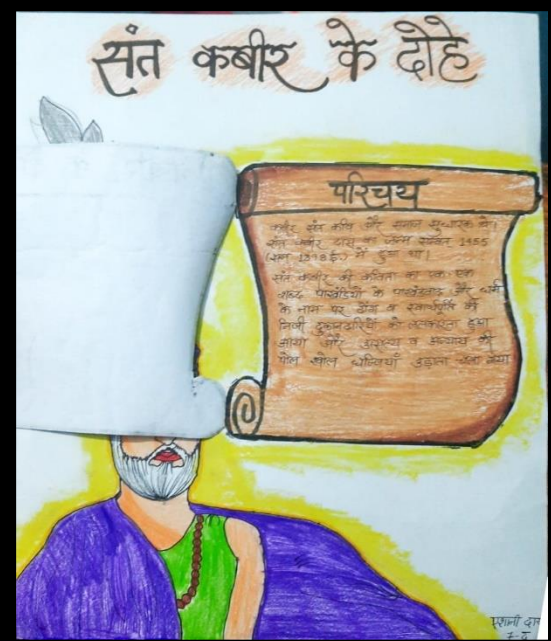 संत कबीर के दोहे
परिचय
कबीर संत कवि और समाज सुधारक थे।
संत कबीर दास का जन्म संवत 1455
(सन 1398ई०) में हुआ था।
संत कबीर की कविता का एक-एक
शब्द पाखंडियों के पाखंडवाद और धर्म
के नाम पर ढोंग व स्वार्थपूर्ति की
निजी दुकानदारियों को ललकारता हुआ
आया और असत्य व अन्याय की
पोल खोल धज्जियाँ उड़ाता चला गया